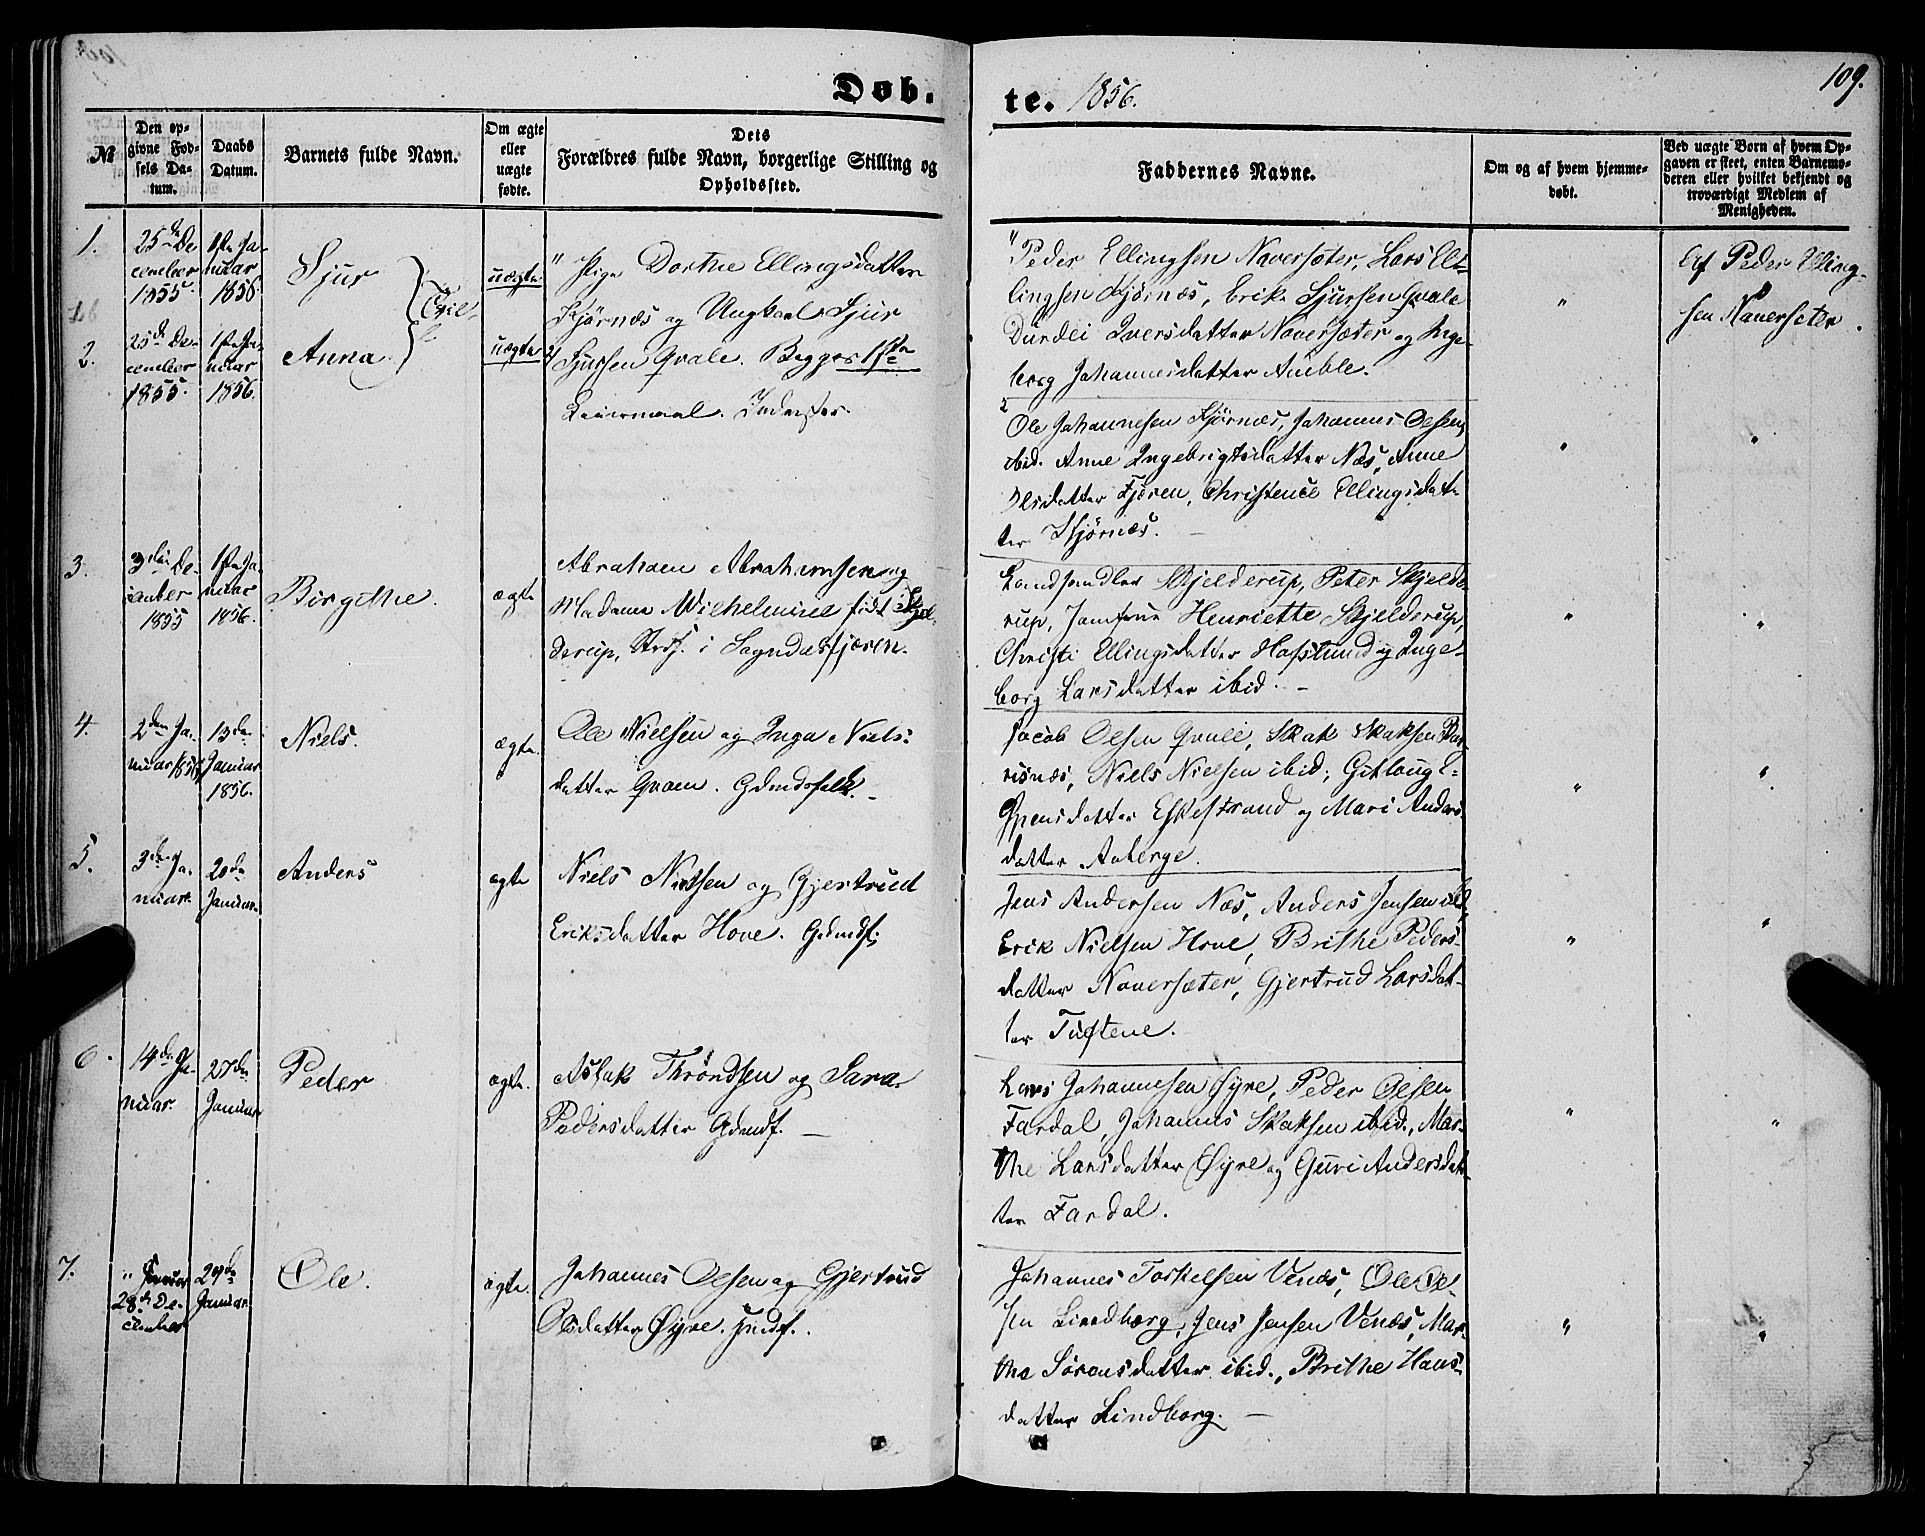 Døb-
te. 1856.
109.
№
Den op-
givne Fød-
sels Da-
tum.
Daabs
Datum.
Barnets fulde Navn.
Om ægte
eller
uægte
fødte.
Dets
Forældres fulde Navn, borgerlige Stilling og
Opholdssted.
Faddernes Navne.
Om og af hvem hjemme-
døbt.
Ved uægte Børn af hvem Op-
gaven er skeet, enten Barnemo-
deren eller hvilket bekjendt og
troværdigt Medlem af
Menigheden.
1.
25de De-
cember
1855.
1ste Ja-
nuar
1856
Sjur
uægte
" Pige Dorthe Ellingsdatter
Stjørnæs og Ungkarl Sjur
Sjursen Qvale. Begges 1ste
Leiermaal. Inderster.
" Peder Ellingsen Naversæter, Lars El-
lingsen Stjørnæs, Erik Sjursen Qvale
Durdei Iversdatter Naversæter og Inge-
borg Johannesdatter Amble.
"
Af Peder Elling-
sen Naversæter.
2.
25de De-
cember
1855.
1ste Ja-
nuar
1856.
Anna
uægte
2
Ole Johannesen Stjørnæs, Johannes Olsen
ibid. Anne Ingebrigtsdatter Næs, Anne
Olsdatter Fjøren, Christense Ellingsdat-
ter Stjørnæs. —
"
"
3.
3die De-
cember
1855
1ste Ja-
nuar
1856.
Birgithe.
ægte
Abraham Abrahamsen og
Madame Wilhelmine født Skjel-
derup, Strds. i Sogndalsfjæren.
Landhandler Skjelderup, Peter Skjelde-
rup, Jomfrue Henriette Skjelderup,
Christi Ellingsdatter Hafslund og Inge-
borg Larsdatter ibid. —
"
"
4.
2den Ja-
nuar 1856
13de
Januar
1856.
Niels.
ægte
Ole Nielsen og Inga Niels-
datter Qvam. Gdmdsfolk. —
Jacob Olsen Qvale, Skak Skaksen
Niels Nielsen ibid; Gitloug E-
spensdatter Eskestrand og Mari Anders-
datter Aaberge.
"
"
5.
3die Ja-
nuar.
20de
Januar
Anders
ægte
Niels Nielsen og Gjertrud
Eriksdatter Hove. Gdmdf.
Jens Andersen Næs, Anders Jensen ibd.
Erik Nielsen Hove, Brithe Peders-
datter Naversæter, Gjertrud Larsdat-
ter Tuftene.
"
"
6.
14de Ja-
nuar.
27de
Januar
Peder
ægte.
Aslak Thröndsen og Sara
Pedersdatter Gdmdf. —
Lars Johannesen Øyre, Peder Olsen
Fardal, Johannes Skaksen ibid., Mar-
the Larsdatter Øyre og Guri Andersdat-
ter Fardal.
"
"
7.
28de De-
cember
29de
Januar
Ole.
ægte.
Johannes Olsen og Gjertrud
Olsdatter Øyre.
Johannes Torkelsen Venæs, Ole Ol-
sen Lindborg, Jens Jensen Venæs, Mar-
the Sørensdatter ibid., Brithe Hans-
datter Lindborg. —
"
"